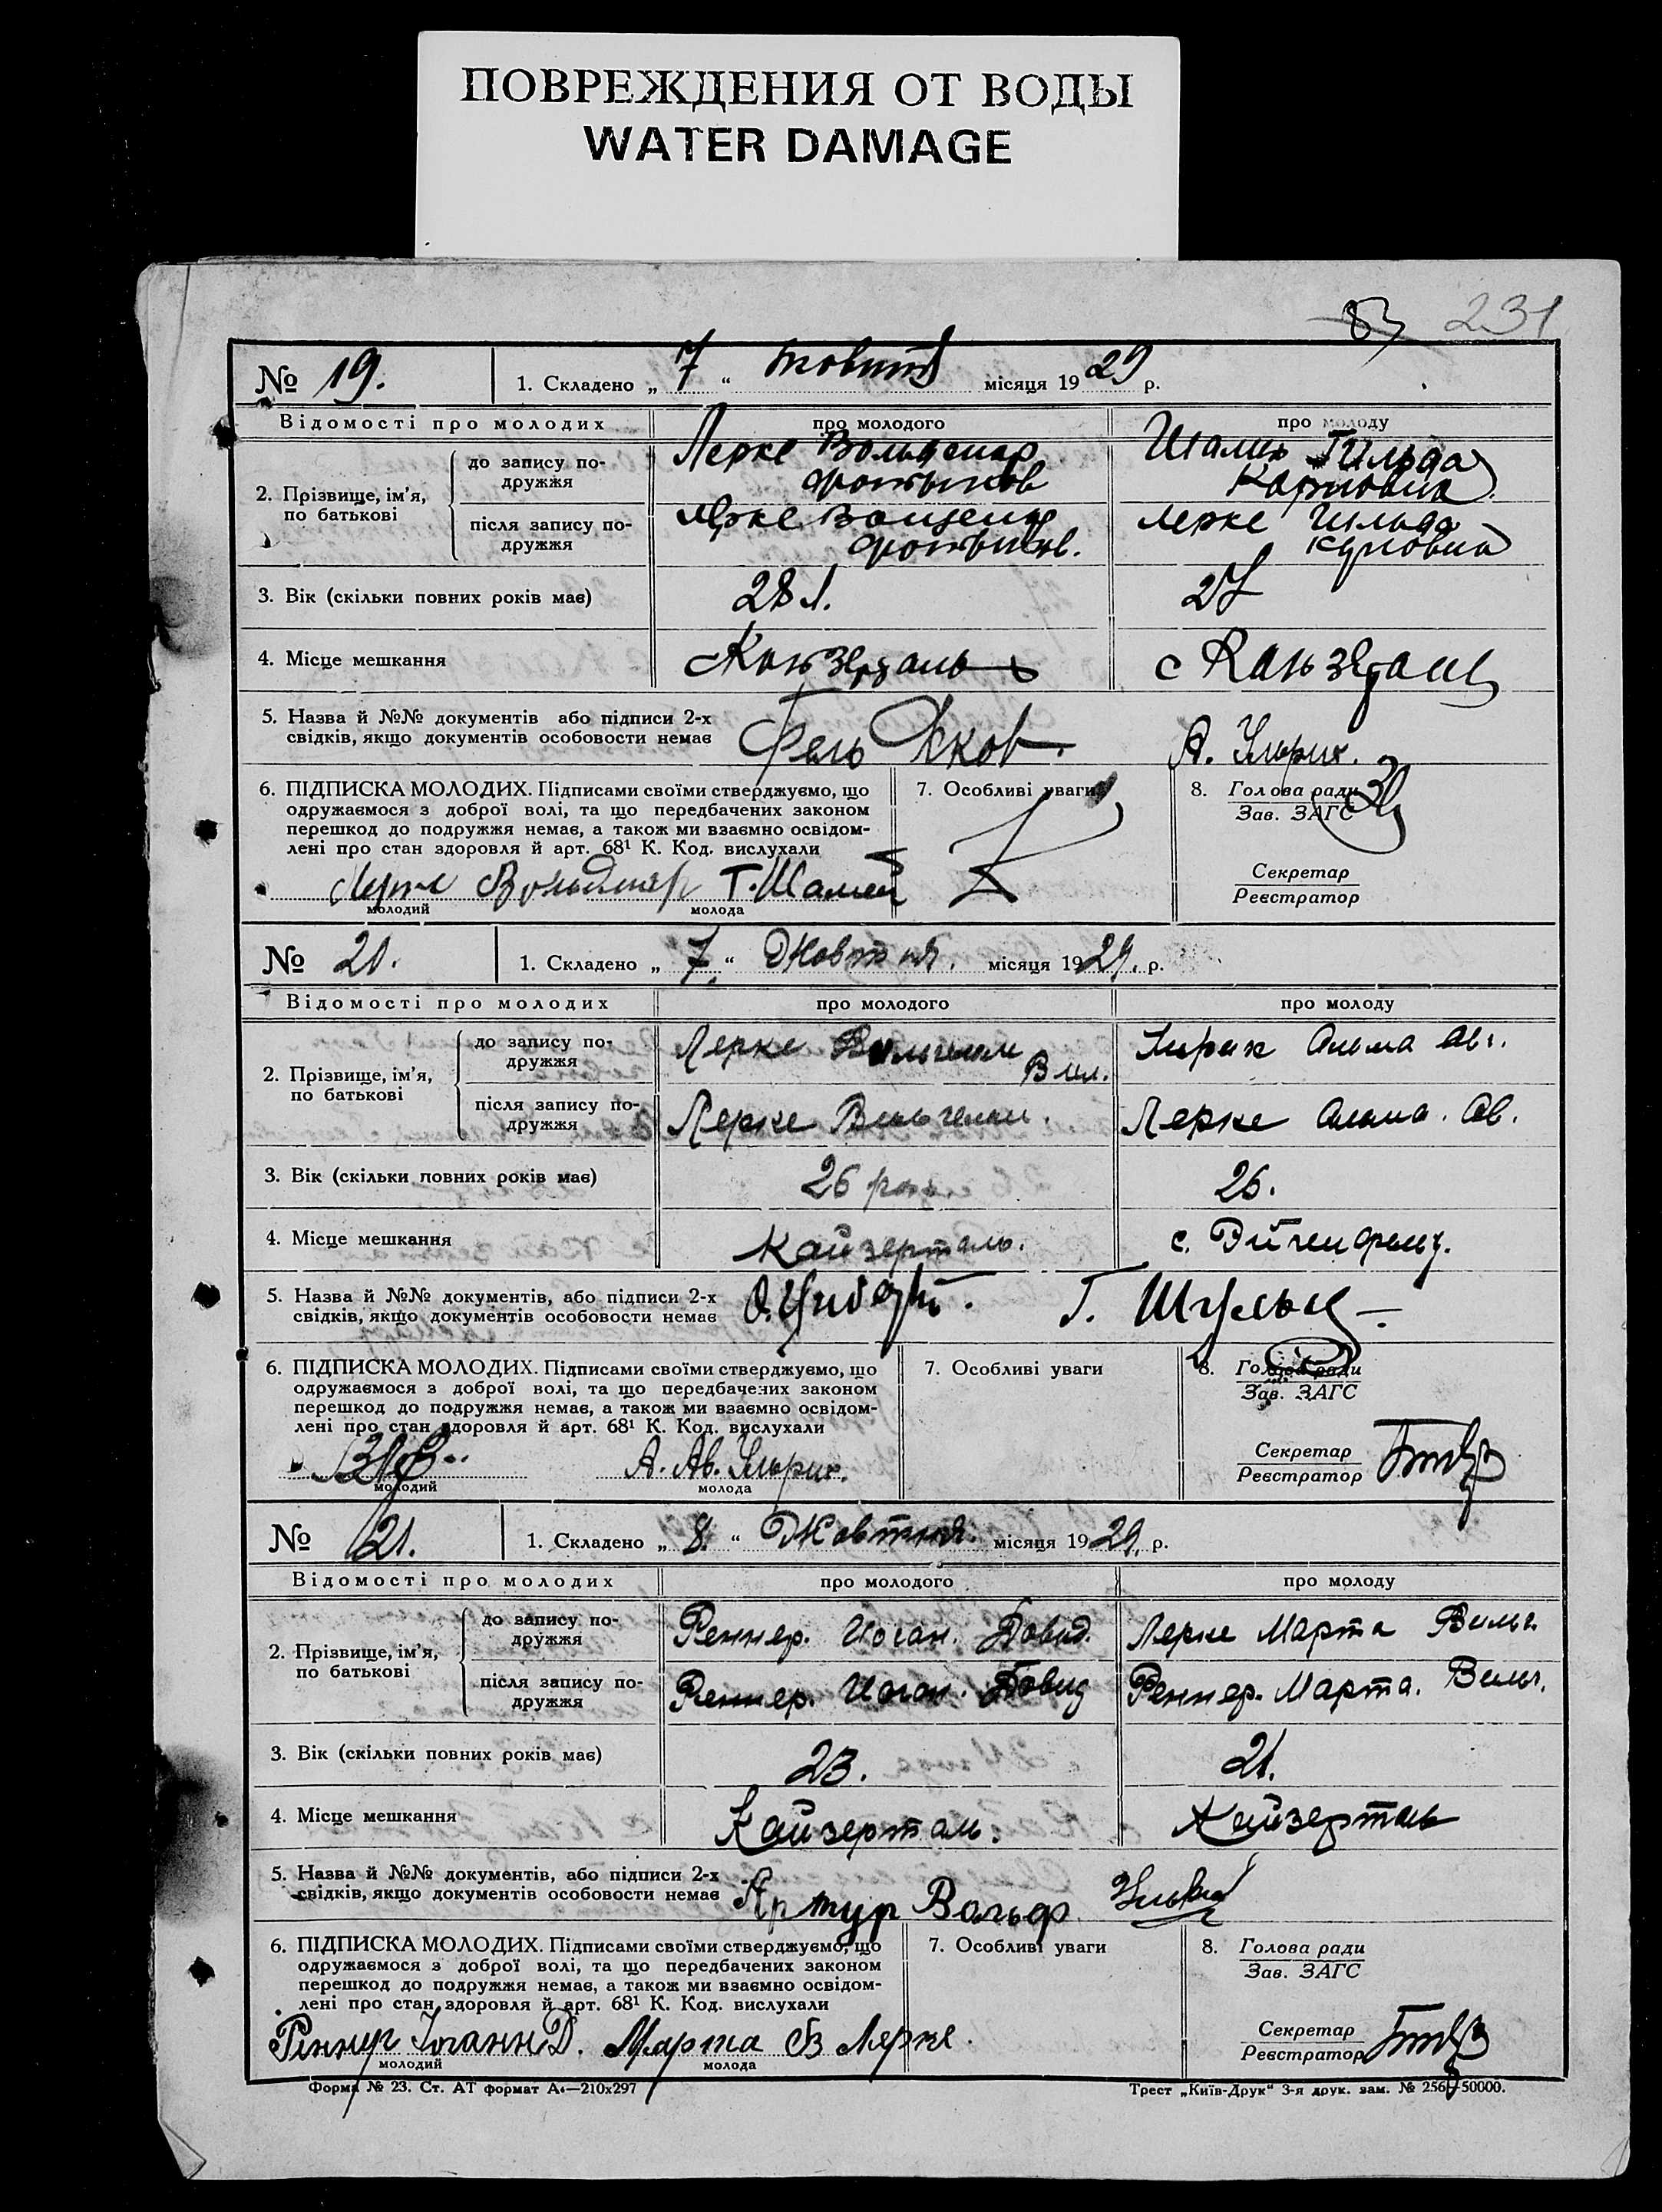 ПОВРЕЖДЕНИЯ ОТ ВОДЫ
WATER DAMAGE
83 231
№ 19. 1. Складено „ 7 “ місяця 1929 р.
Відомості про молодих про молодого про молоду
2. Прізвище, ім'я, по батькові
до запису подружжя Лерке Вольдемар Гильда Карловна
після запису подружжя Лерке Лерке Гильда Карловна
3. Вік (скільки повних років має) 28 л. 27
4. Місце мешкання
5. Назва й №№ документів або підписи 2-х
свідків, якщо документів особовости немає А. Ульрих.
6. ПІДПИСКА МОЛОДИХ. Підписами своїми стверджуємо, що
одружаємося з доброї волі, та що передбачених законом
перешкод до подружжя немає, а також ми взаємно освідом-
лені про стан здоров'я й арт. 68¹ К. Код. вислухали
7. Особливі уваги
8. Голова ради
Зав. ЗАГС
Секретар
Реєстратор
Лерке Вольдемар Г. Шамей
молодий молода
№ 20. 1. Складено „ 7. “ Жовтня. місяця 1929. р.
Відомості про молодих про молодого про молоду
2. Прізвище, ім'я, по батькові
до запису подружжя Лерке Вильгельм Вил. Альма Ав.
після запису подружжя Лерке Вильгельм. Лерке Альма. Ав.
3. Вік (скільки повних років має) 26 26.
4. Місце мешкання Кайзерталь. с. Эйгенфельд.
5. Назва й №№ документів, або підписи 2-х
свідків, якщо документів особовости немає Г. Шульц
6. ПІДПИСКА МОЛОДИХ. Підписами своїми стверджуємо, що
одружаємося з доброї волі, та що передбачених законом
перешкод до подружжя немає, а також ми взаємно освідом-
лені про стан здоровля й арт. 68¹ К. Код. вислухали
7. Особливі уваги
8. Голова ради
Зав. ЗАГС
Секретар
Реєстратор
А. Ав. Ульрих.
молодий молода
№ 21. 1. Складено „ 8. “ Жовтня. місяця 1929. р.
Відомості про молодих про молодого про молоду
2. Прізвище, ім'я, по батькові
до запису подружжя Реннер. Иоган. Давид. Лерке Марта Вильг.
після запису подружжя Реннер. Иоган. Давид Реннер. Марта. Вильг.
3. Вік (скільки повних років має) 23. 21.
4. Місце мешкання Кайзерталь. Кайзерталь
5. Назва й №№ документів, або підписи 2-х
свідків, якщо документів особовости немає Артур Вольф
6. ПІДПИСКА МОЛОДИХ. Підписами своїми стверджуємо, що
одружаємося з доброї волі, та що передбачених законом
перешкод до подружжя немає, а також ми взаємно освідом-
лені про стан здоровля й арт. 68¹ К. Код. вислухали
7. Особливі уваги
8. Голова ради
Зав. ЗАГС
Секретар
Реєстратор
Реннер Іоганн Д. Марта В Лерке.
молодий молода
Форма № 23. Ст. АТ формат А₄—210x297 Трест „Київ-Друк“ 3-я друк. зам. № 256 50000.